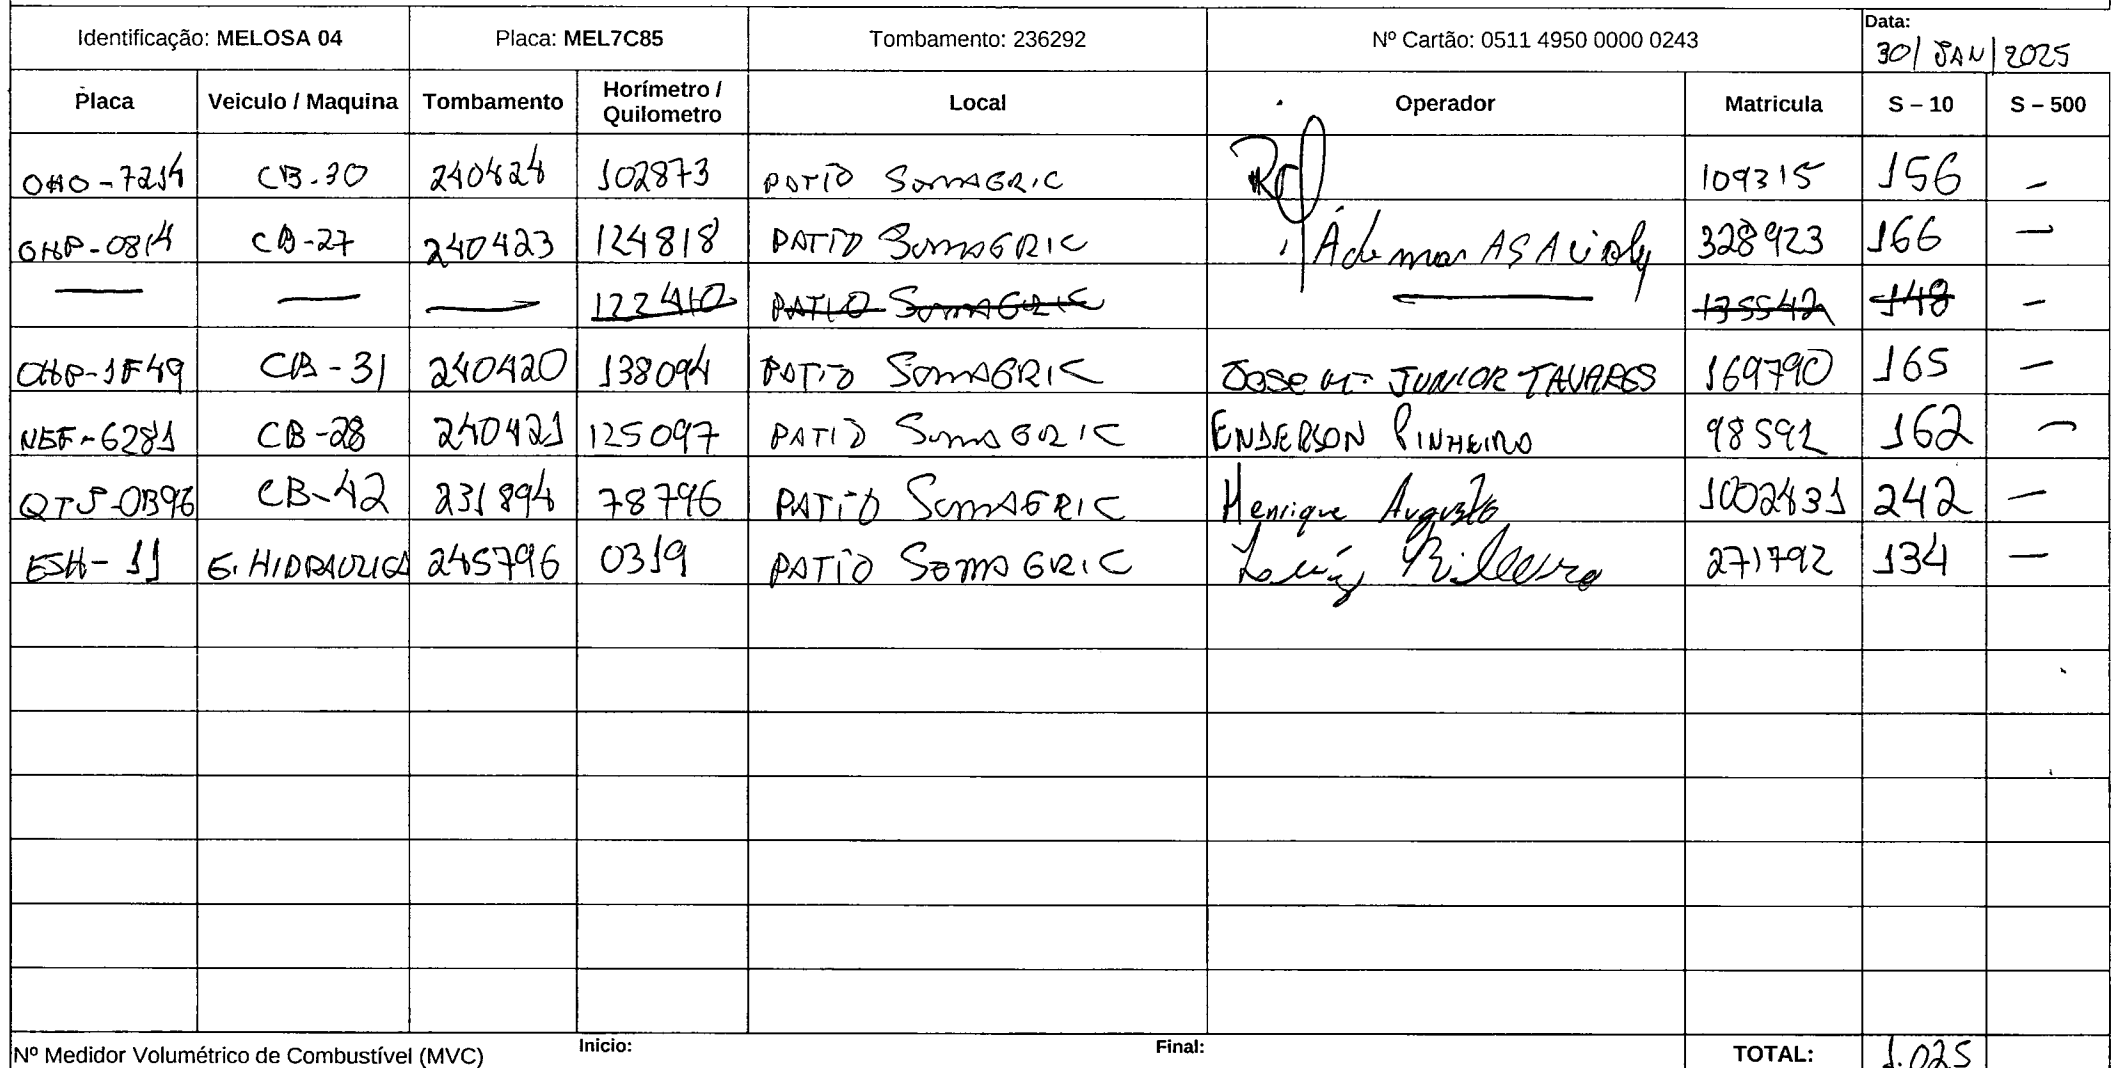 Identificação: MELOSA 04 Placa: MEL7C85 Tombamento: 236292 Nº Cartão: 0511 4950 0000 0243 Data: 30/JAN/2025
Placa Veiculo / Maquina Tombamento Horímetro / Quilometro Local Operador Matricula S – 10 S – 500
OHO-7214 CB-30 240424 102873 PATIO SOMAGRIC 109315 156 –
OHP-0814 CB-27 240423 124818 PATIO SOMAGRIC Ademar AS Acioly 328923 166 –
— — — 122410 PATIO SOMAGRIC — 135542 148 –
OHP-1F49 CB-31 240420 138094 PATIO SOMAGRIC JOSE Mª JUNIOR TAVARES 169790 165 –
NEF-6281 CB-28 240421 125097 PATIO SOMAGRIC ENDERSON PINHEIRO 98591 162 –
QTS-0B96 CB-42 231894 78796 PATIO SOMAGRIC Henrique Augusto 1002431 242 –
ESH-11 E. HIDRAULICA 245796 0319 PATIO SOMAGRIC 271792 134 –
Nº Medidor Volumétrico de Combustível (MVC) Inicio: Final: TOTAL: 1.025